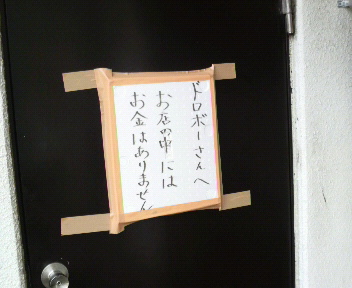 ドロボーさんへ
お店の中には
お金はありません